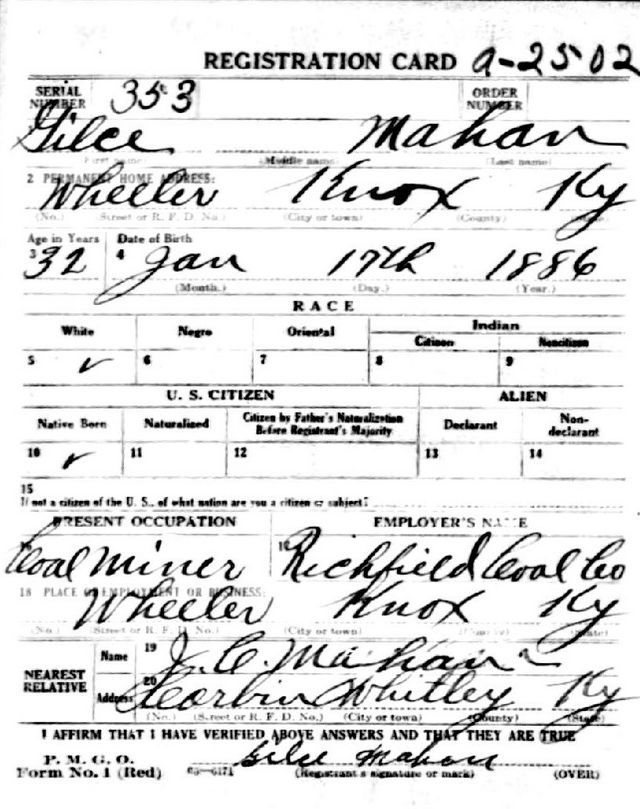 REGISTRATION CARD a-2502
SERIAL NUMBER 353 ORDER NUMBER
Gilce Mahan
First name Middle name (Last name)
2 PERMANENT HOME ADDRESS:
Wheeler Knox Ky
(No.) Street or R. F. D. No.) (City or town) (County) State)
Age in Years Date of Birth
3 32 4 Jan 17th 1886
(Month.) (Day.) (Year.)
RACE
White Negro Oriental Indian
Citizen Noncitizen
5 ✓ 6 7 8 9
U. S. CITIZEN ALIEN
Native Born Naturalized Citizen by Father's Naturalization Before Registrant's Majority Declarant Non-declarant
10 ✓ 11 12 13 14
15
If not a citizen of the U. S., of what nation are you a citizen or subject?
PRESENT OCCUPATION EMPLOYER'S NAME
Coal Miner Richfield Coal Co
18 PLACE OF EMPLOYMENT OR BUSINESS:
Wheeler Knox Ky
(No.) Street or R. F. D. No.) (City or town) (County) State)
NEAREST RELATIVE Name 19 J. C. Mahan
Address 20 Corbin Whitley Ky
(No.) (Street or R. F. D. No.) (City or town) (County) (State)
I AFFIRM THAT I HAVE VERIFIED ABOVE ANSWERS AND THAT THEY ARE TRUE
P. M. G. O.
Form No. 1 (Red) Gilce Mahan
(Registrant's signature or mark) (OVER)